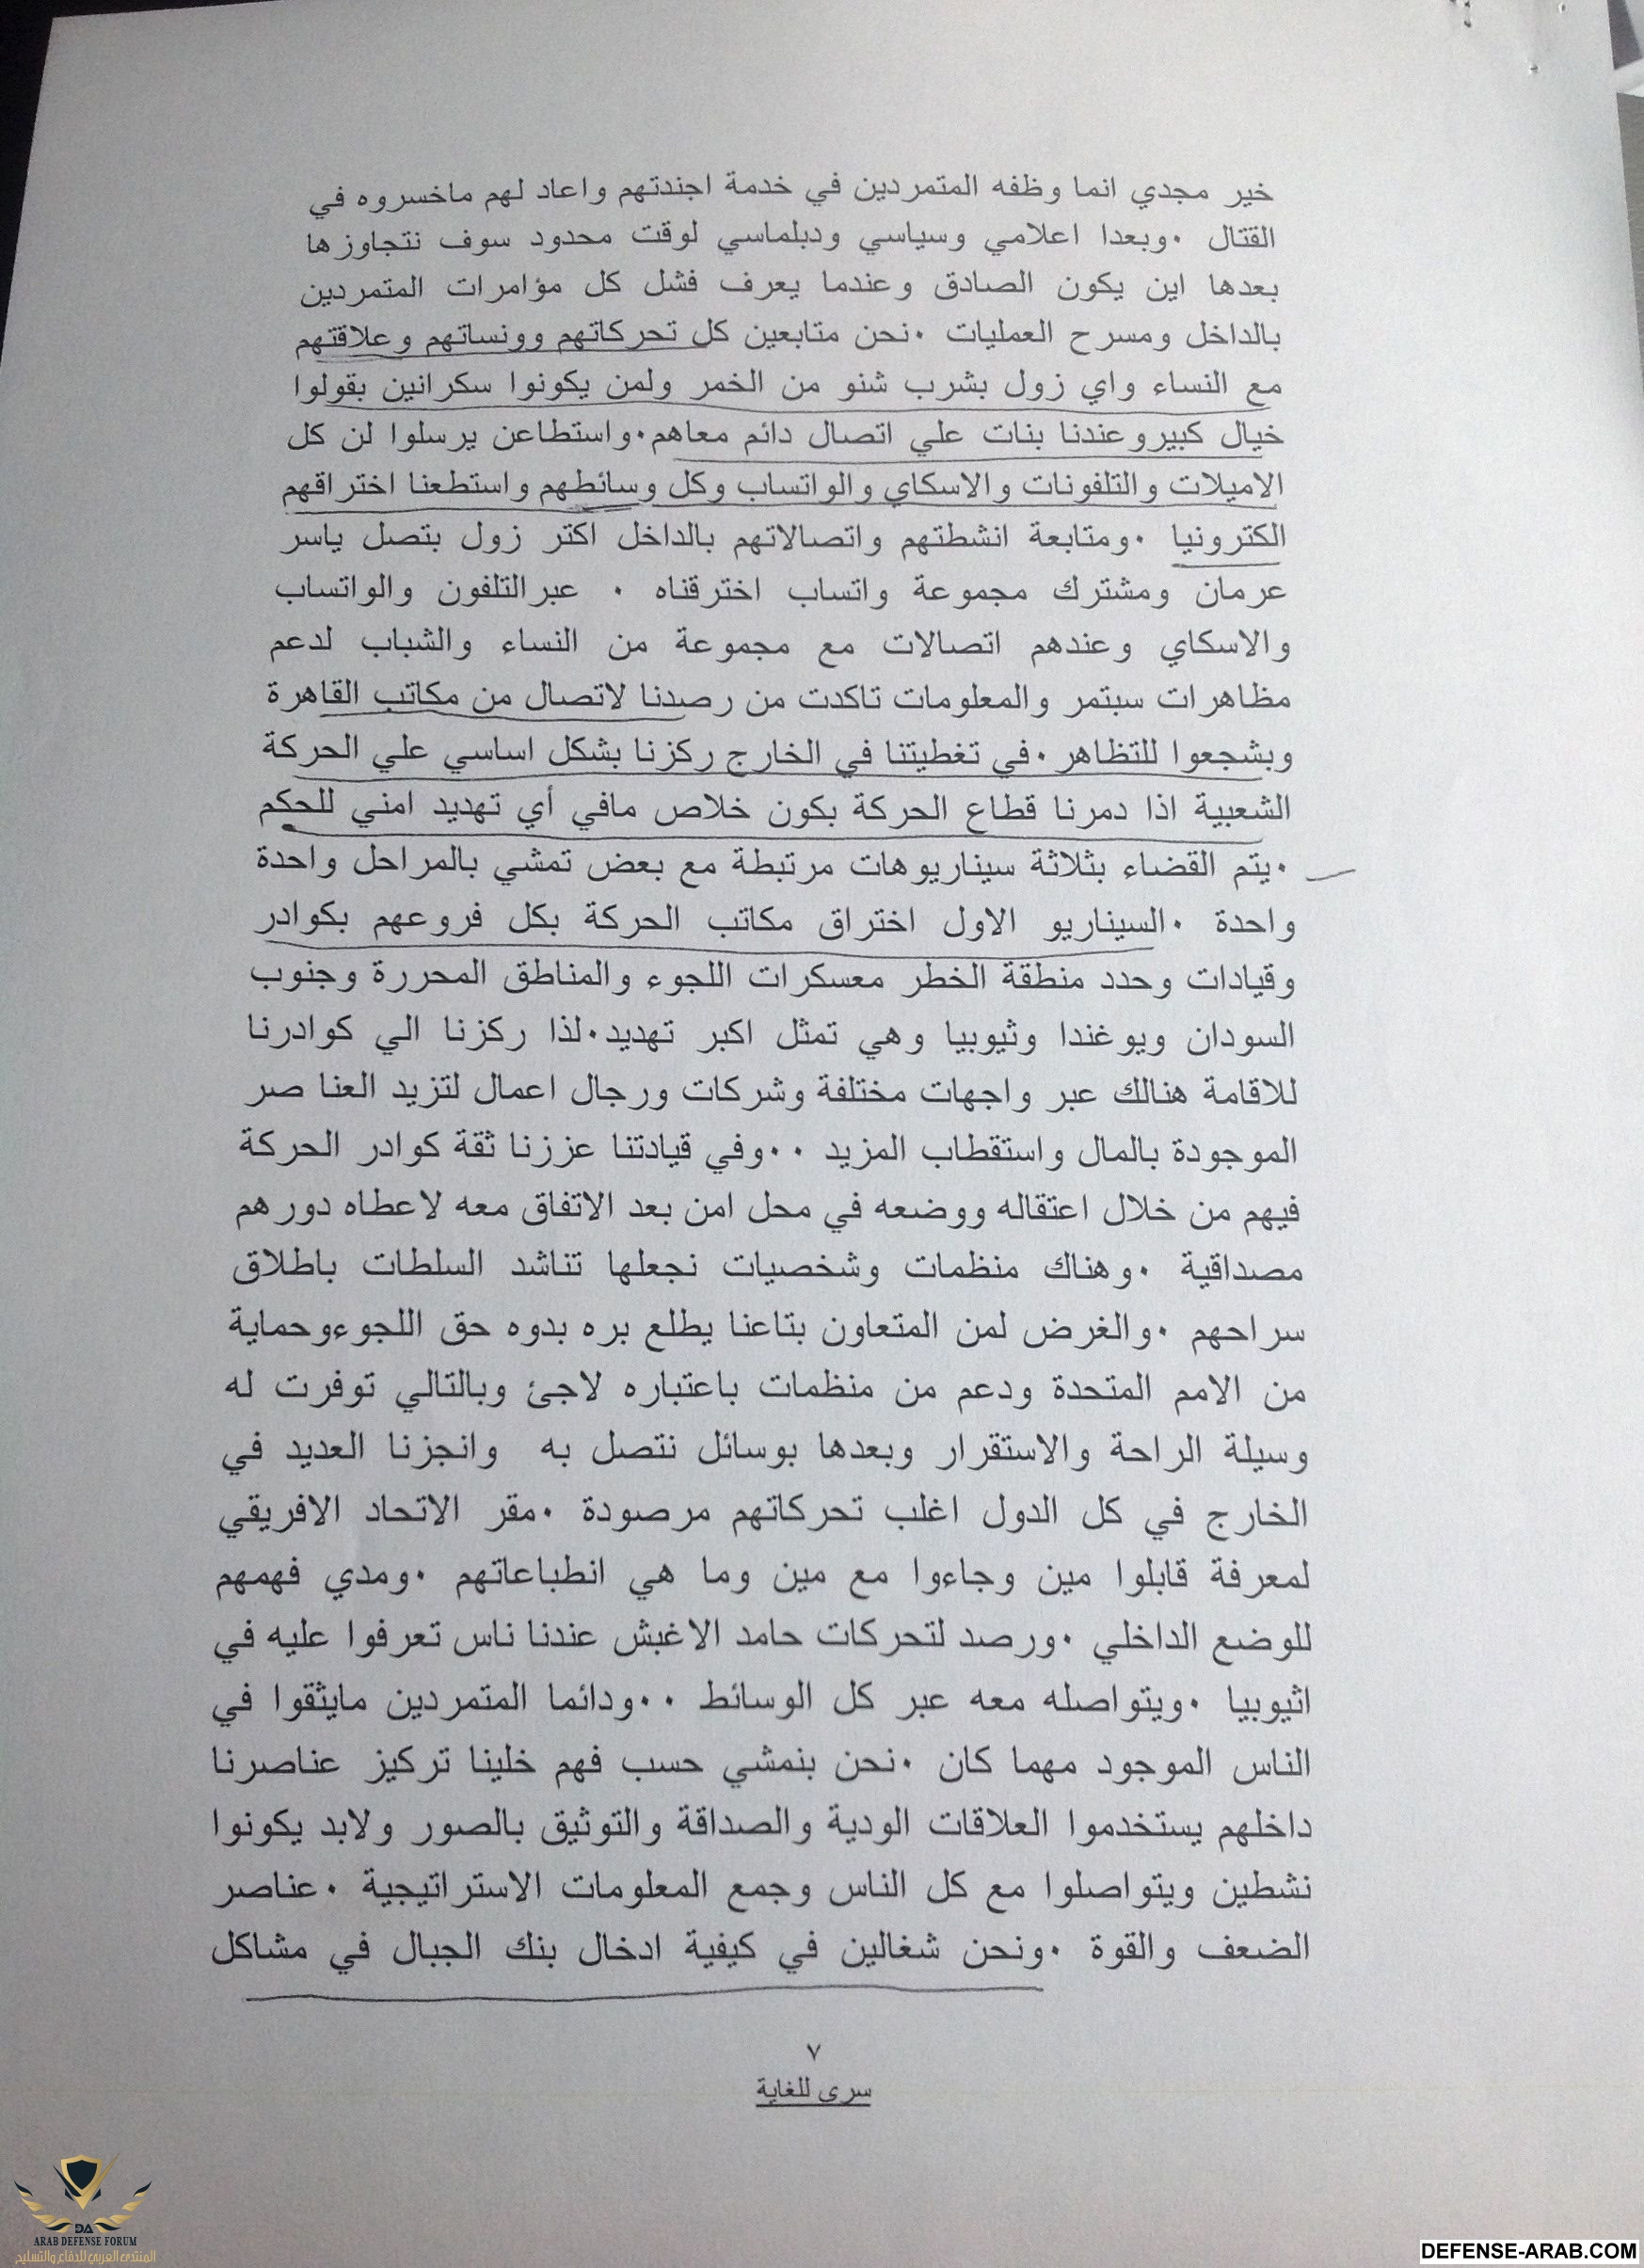 خير مجدي انما وظفه المتمردين في خدمة اجندتهم واعاد لهم ماخسروه في
القتال ٠وبعدا اعلامي وسياسي ودبلماسي لوقت محدود سوف نتجاوزها
بعدها اين يكون الصادق وعندما يعرف فشل كل مؤامرات المتمردين
بالداخل ومسرح العمليات ٠نحن متابعين كل تحركاتهم وونساتهم وعلاقتهم
مع النساء واي زول بشرب شنو من الخمر ولمن يكونوا سكرانين بقولوا
خيال كبيروعندنا بنات علي اتصال دائم معاهم٠واستطاعن يرسلوا لن كل
الاميلات والتلفونات والاسكاي والواتساب وكل وسائطهم واستطعنا اختراقهم
الكترونيا ٠ومتابعة انشطتهم واتصالاتهم بالداخل اكتر زول بتصل ياسر
عرمان ومشترك مجموعة واتساب اخترقناه ٠ عبرالتلفون والواتساب
والاسكاي وعندهم اتصالات مع مجموعة من النساء والشباب لدعم
مظاهرات سبتمر والمعلومات تاكدت من رصدنا لاتصال من مكاتب القاهرة
وبشجعوا للتظاهر ٠في تغطيتنا في الخارج ركزنا بشكل اساسي علي الحركة
الشعبية اذا دمرنا قطاع الحركة بكون خلاص مافي أي تهديد امني للحكم
٠يتم القضاء بثلاثة سيناريوهات مرتبطة مع بعض تمشي بالمراحل واحدة
واحدة ٠السيناريو الاول اختراق مكاتب الحركة بكل فروعهم بكوادر
وقيادات وحدد منطقة الخطر معسكرات اللجوء والمناطق المحررة وجنوب
السودان ويوغندا وثيوبيا وهي تمثل اكبر تهديد٠لذا ركزنا الي كوادرنا
للاقامة هنالك عبر واجهات مختلفة وشركات ورجال اعمال لتزيد العنا صر
الموجودة بالمال واستقطاب المزيد ٠٠وفي قيادتنا عززنا ثقة كوادر الحركة
فيهم من خلال اعتقاله ووضعه في محل امن بعد الاتفاق معه لاعطاه دورهم
مصداقية ٠وهناك منظمات وشخصيات نجعلها تناشد السلطات باطلاق
سراحهم ٠والغرض لمن المتعاون بتاعنا يطلع بره بدوه حق اللجوءوحماية
من الامم المتحدة ودعم من منظمات باعتباره لاجئ وبالتالي توفرت له
وسيلة الراحة والاستقرار وبعدها بوسائل نتصل به وانجزنا العديد في
الخارج في كل الدول اغلب تحركاتهم مرصودة ٠مقر الاتحاد الافريقي
لمعرفة قابلوا مين وجاءوا مع مين وما هي انطباعاتهم ٠ومدي فهمهم
للوضع الداخلي ٠ورصد لتحركات حامد الاغبش عندنا ناس تعرفوا عليه في
اثيوبيا ٠ويتواصله معه عبر كل الوسائط ٠٠ودائما المتمردين مايثقوا في
الناس الموجود مهما كان ٠نحن بنمشي حسب فهم خلينا تركيز عناصرنا
داخلهم يستخدموا العلاقات الودية والصداقة والتوثيق بالصور ولابد يكونوا
نشطين ويتواصلوا مع كل الناس وجمع المعلومات الاستراتيجية ٠عناصر
الضعف والقوة ٠ونحن شغالين في كيفية ادخال بنك الجبال في مشاكل
٧
سرى للغاية
DA
ARAB DEFENSE FORUM
المنتدى العربي للدفاع والتسليح
DEFENSE-ARAB.COM